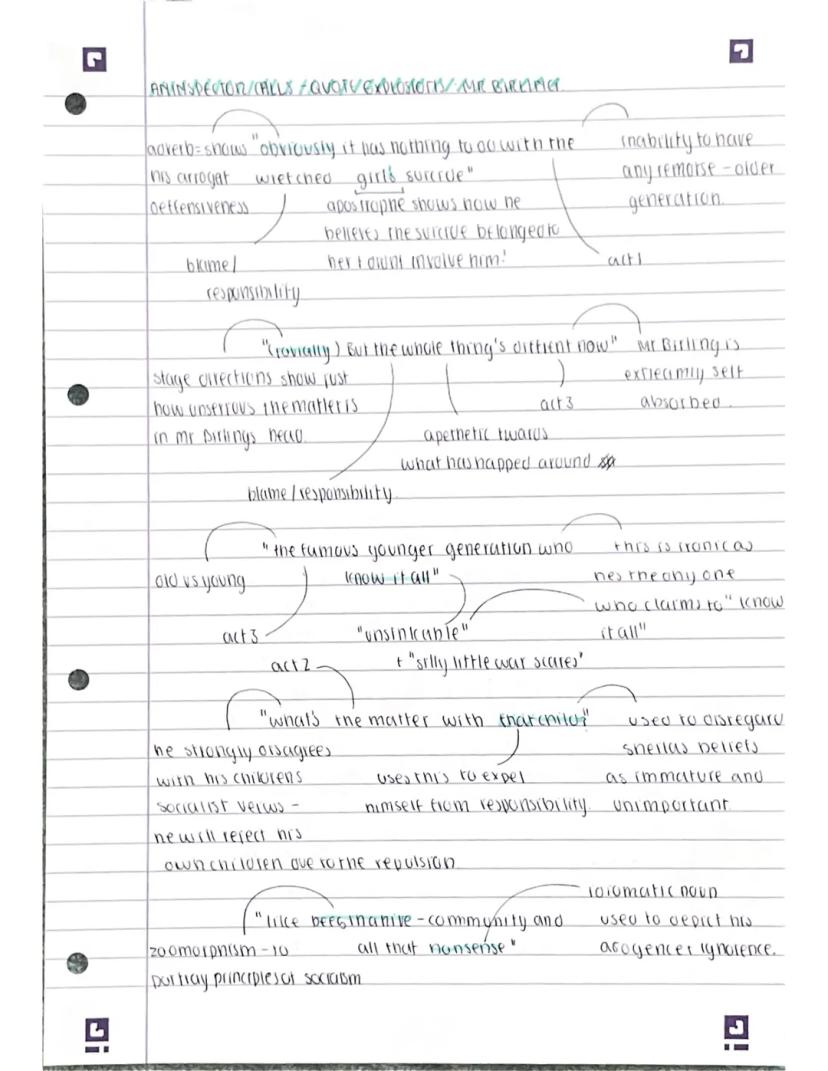 AN INSPECTOR/CALLS/QUOTE/EXPLOSIONS/MR BIRLING
adverb=shows "obviously it has nothing to do with the inability to have
his arrogat wretched girls suicide" any remorse - older
deffensiveness apostrophe shows how he generation.
believes the suicide belonged to
blame/ her + didnt involve him! act 1
responsibility
"(jovially) But the whole thing's diffrent now" Mr Birling is
stage directions show just extreamly self
how unserious the matter is act 3 absorbed.
in mr Birlings head. apethetic twards
what has happed around
blame/responsibility.
"the famous younger generation who this is ironic as
old vs young know it all" hes the only one
who claims to "know
act 3 "unsinkable" it all"
act 2 + "silly little war scares"
"what's the matter with that child?" used to disregard
he strongly disagrees sheilas beliefs
with his childrens uses this to expel as immature and
socialist veiws - himself from responsibility. unimportant
he will reject his
own children due to the repulsion
idiomatic noun
"like bees in a hive - community and used to depict his
zoomorphism - to all that nonsense" arogence + ignorence.
portray principles of socialism